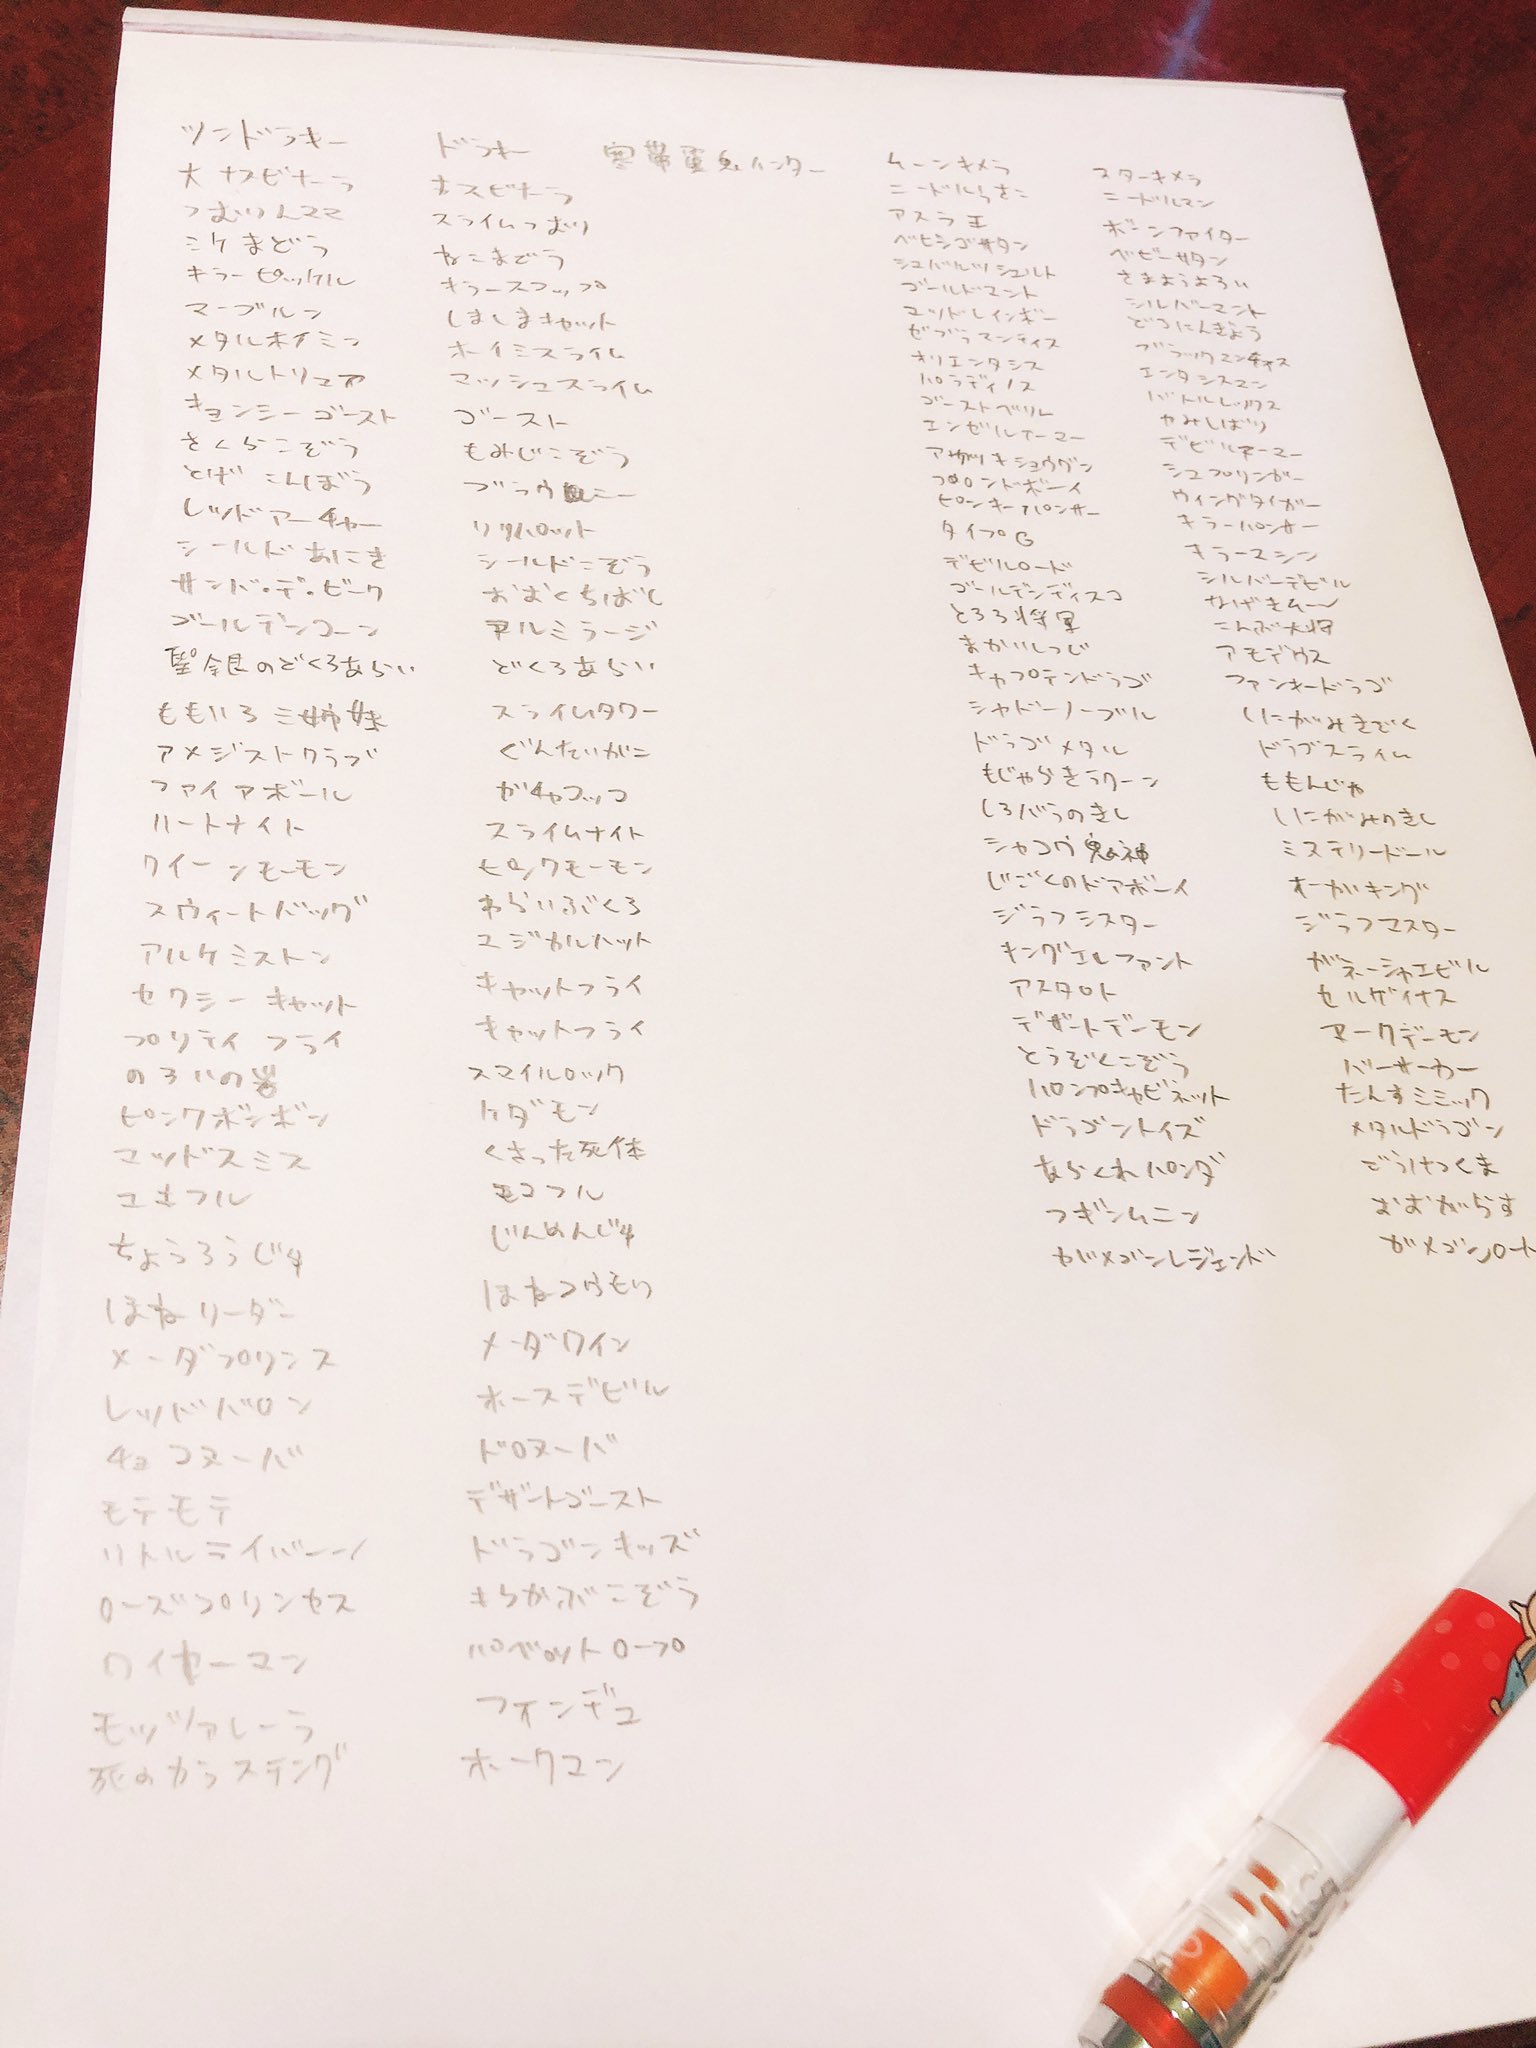 ツンドラキー ドラキー 寒帯電気ハンター
大ナスビナーラ ナスビナーラ
つむりんママ スライムつむり
ミケまどう ねこまどう
キラーピッケル キラースコップ
マーブルン しましまキャット
メタルホイミン ホイミスライム
メタルトリュア マッシュスライム
キョンシーゴースト ゴースト
さくらこぞう もみじこぞう
とげこんぼう ブラウニー
レッドアーチャー リリパット
シールドあにき シールドこぞう
サンバ・デ・ビーク おおくちばし
ゴールデンコーン アルミラージ
聖銀のどくろあらい どくろあらい
ももいろ三姉妹 スライムタワー
アメジストクラブ ぐんたいがに
ファイアボール ガチャコッコ
ハートナイト スライムナイト
クイーンモーモン ピンクモーモン
スウィートバッグ わらいぶくろ
アルケミストン マジカルハット
セクシーキャット キャットフライ
プリティフライ キャットフライ
のろいの岩 スマイルロック
ピンクボンボン ケダモン
マッドスミス くさった死体
ユキフル モコフル
ちょうろうじゅ じんめんじゅ
ほねリーダー ほねコウモリ
メーダプリンス メーダクイン
レッドバロン ホースデビル
チョコヌーバ ドロヌーバ
モテモテ デザートゴースト
リトルライバーン ドラゴンキッズ
ローズプリンセス きらかぶこぞう
ワイヤーマン パペットロープ
モッツァレーラ フォンデュ
死のカラステング ホークマン
ムーンキメラ スターキメラ
ニードルらさこ ニードルマン
アスラ王 ボーンファイター
ベヒシゴサタン ベビーサタン
シュバルツシュルト さまようよろい
ゴールドマント シルバーマント
マッドレインボー どろにんぎょう
ゼブラマンティス ブラックマンティス
オリエンタシス エンタシスマン
パラディノス バトルレックス
ゴーストベリル かみしばり
エンゼルアーマー デビルアーマー
アカツキショウグン シュプリンガー
ブロンドボーイ ウィングタイガー
ピンキーパンサー キラーパンサー
タイプG キラーマシン
デビルロード シルバーデビル
ゴールデンディスコ なげきムーン
とろろ将軍 こんぶ大将
まかいしつじ アモデウス
キャプテンドラゴ ファンキードラゴ
シャドーノーブル しにがみきぞく
ドラゴメタル ドラゴスライム
もじゃらきラクーン ももんじゃ
しろバラのきし しにがみのきし
シャコウ鬼神 ミステリードール
じごくのドアボーイ オーガキング
ジラフシスター ジラフマスター
キングエルファント ガネーシャエビル
アスタロト セルゲイナス
デザートデーモン アークデーモン
とうぞくこぞう バーサーカー
パンプキャビネット たんすミミック
ドラゴントイズ メタルドラゴン
あらくれパンダ ごうけつくま
フギンムニン おおがらす
ガメゴンレジェンド ガメゴンロード